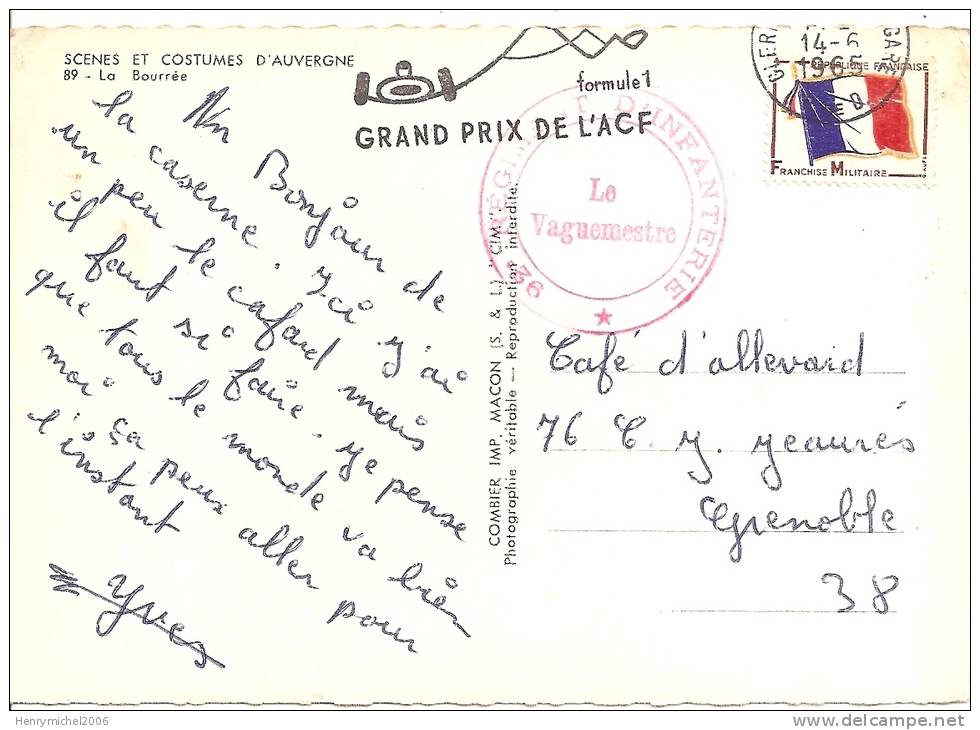 SCENES ET COSTUMES D'AUVERGNE
89 - La Bourrée
Un Bonjour de
la caserne. ici j'ai
un peu le cafard mais
il faut si faire. je pense
que tous le monde va bien
moi ça peus aller pour
l'instant
Yves
formule 1
GRAND PRIX DE L'ACF
14-6
1965
GARE
RÉPUBLIQUE FRANÇAISE
FRANCHISE MILITAIRE
92e RÉGIMENT D'INFANTERIE
Le
Vaguemestre
COMBIER IMP. MACON (S. & L.) "CIM"
Photographie véritable — Reproduction interdite.
Café d'allevard
76 C. J. jeaurés
Grenoble
38
Henrymichel2006
delcampe.net